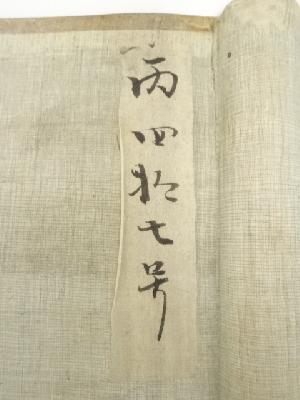 丙四拾七号